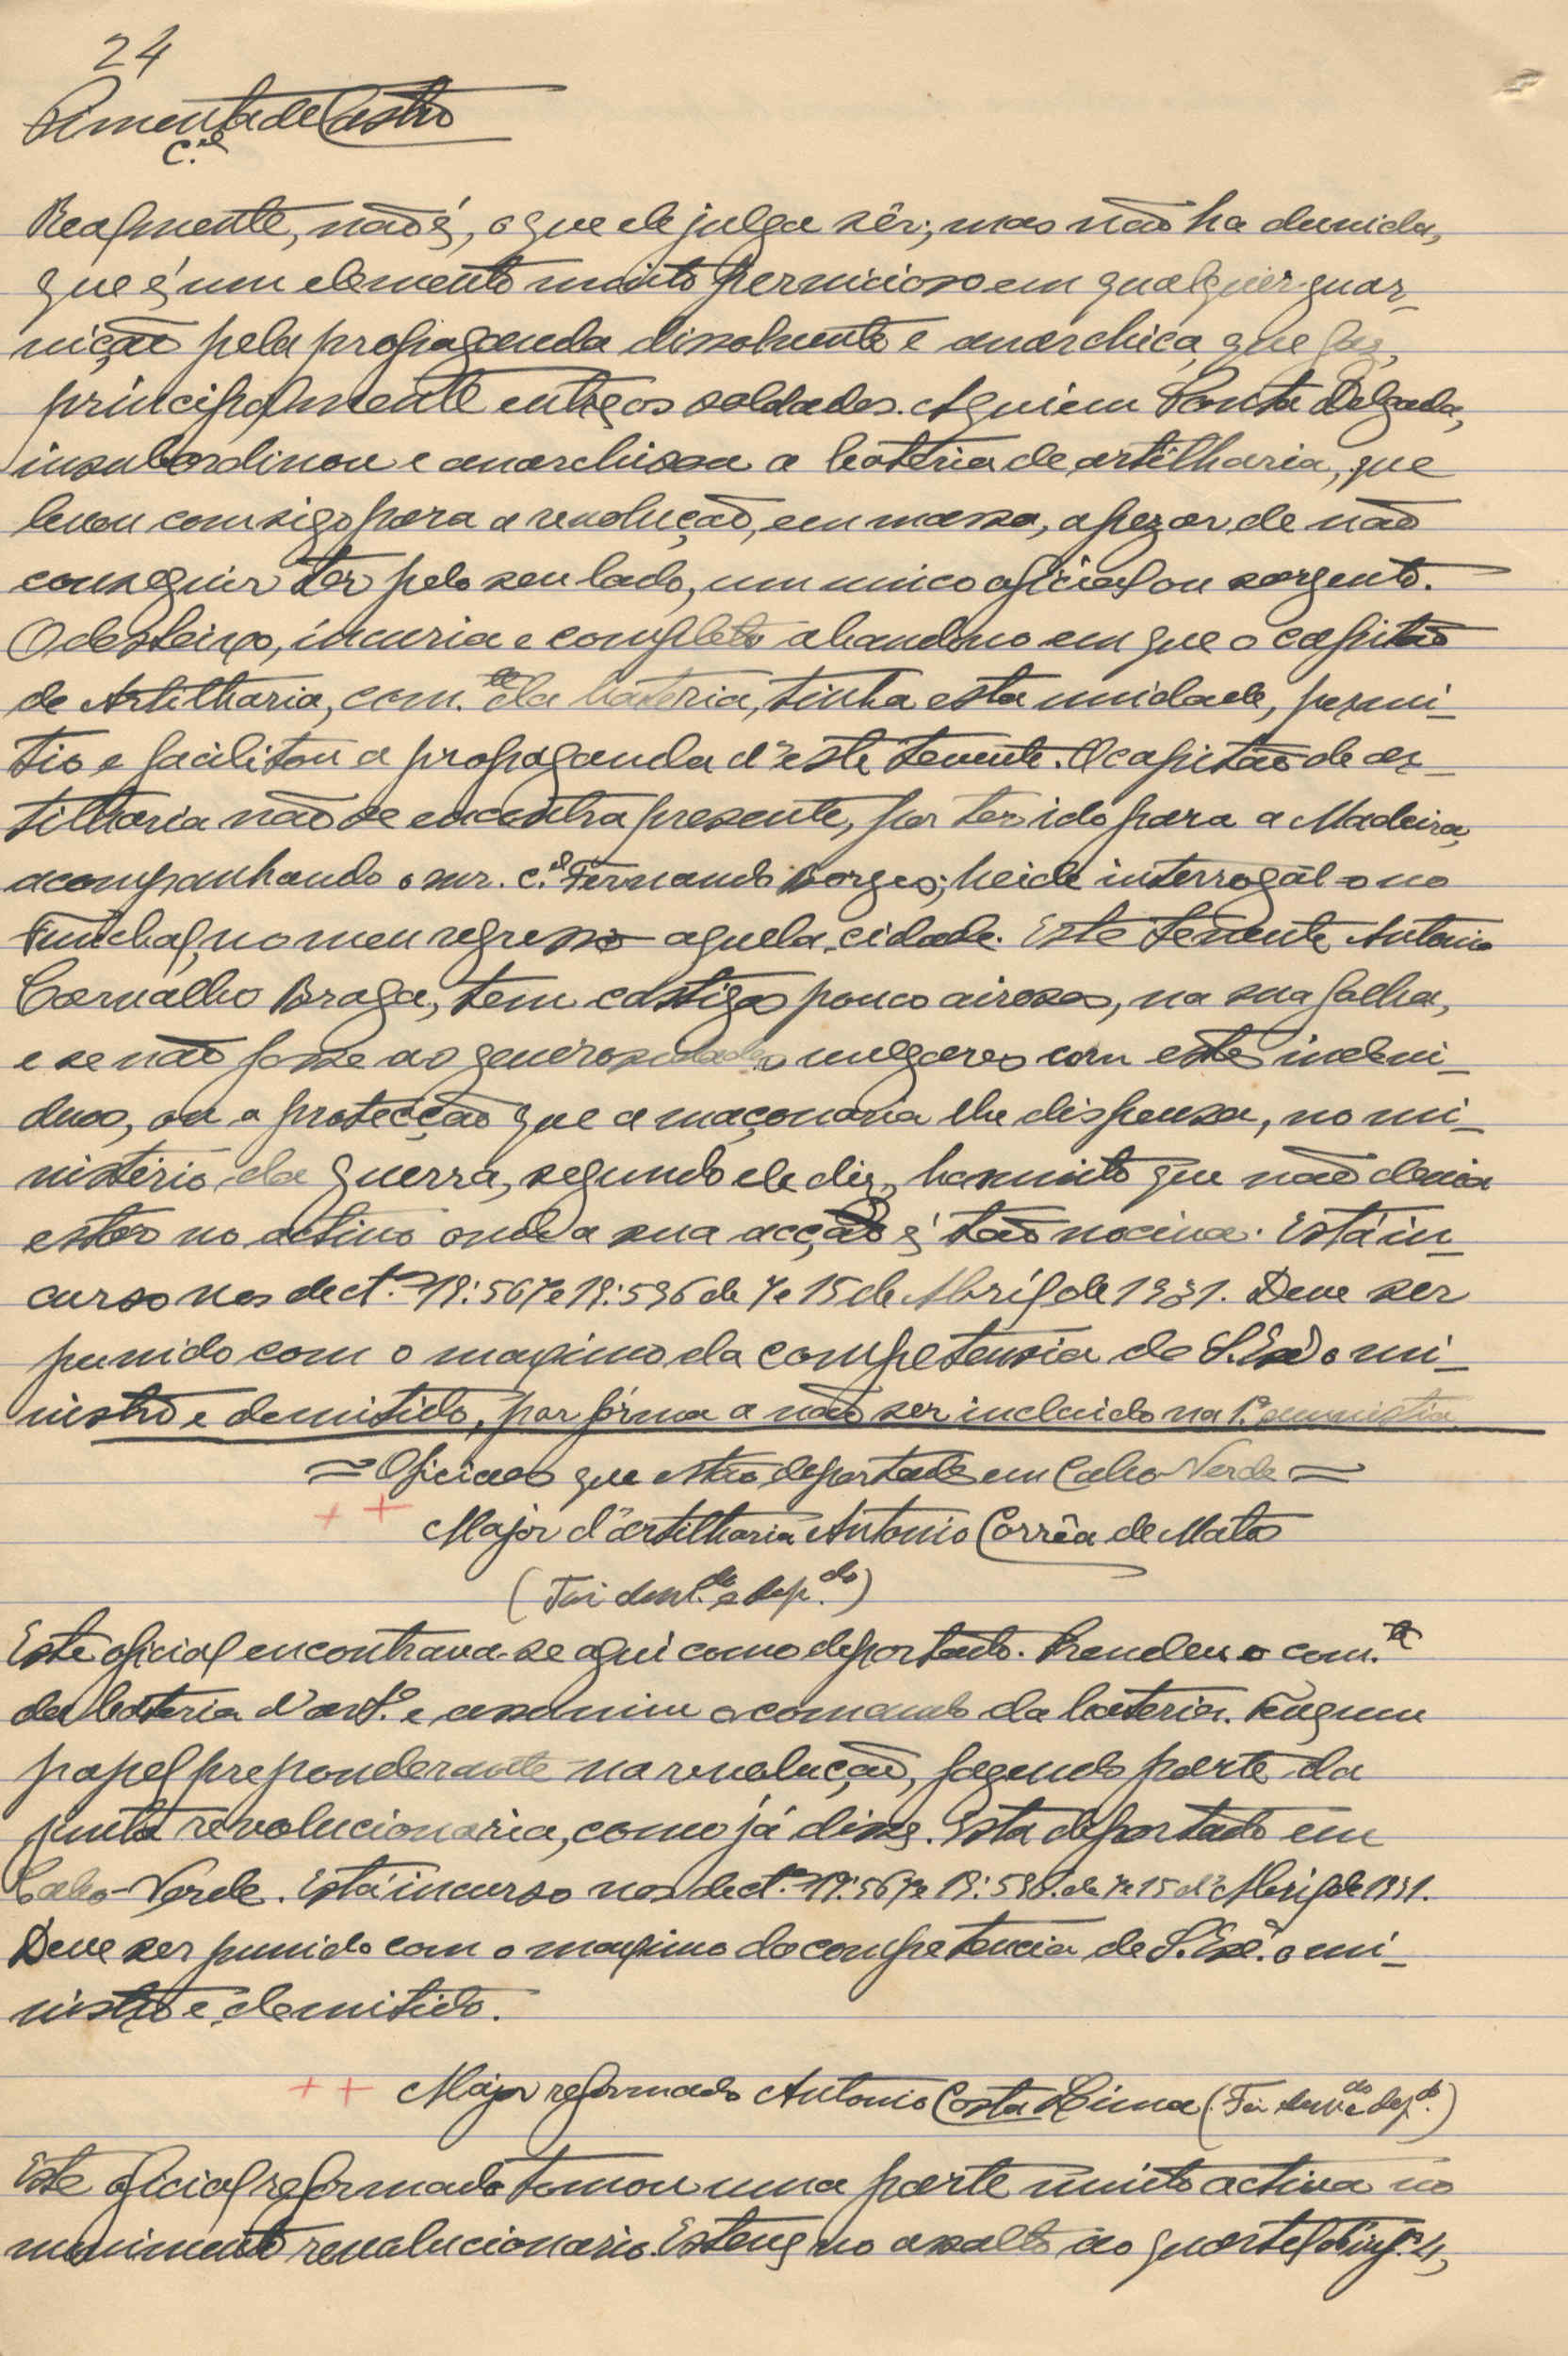 24
Pimenta de Castro
C.el
Realmente, não é, o que ele julga sêr; mas não ha duvida,
que é um elemento muito pernicioso em qualquer guar-
nição pela propaganda dissolvente e anarchica, que faz,
principalmente entre os soldados. Aqui em Ponta Delgada,
insubordinou e anarchisou a bateria de artilharia, que
levou comsigo para a revolução, em massa, apezar de não
conseguir ter pelo seu lado, um unico oficial ou sargento.
O desleixo, incuria e completo abandono em que o capitão
de Artilharia, com.te da bateria, tinha esta unidade, permi-
tio e facilitou a propaganda d'este tenente. O capitão de ar-
tilharia não se encontra presente, por ter ido para a Madeira,
acompanhando o snr. C.el Fernando Borges; heide interrogál-o no
Funchal, no meu regresso aquela cidade. Este tenente Antonio
Carvalho Braga, tem castigos pouco airosos, na sua folha,
e se não fosse as generosidades vulgares com estes indevi-
duos, ou a protecção que a maçonaria lhe dispensa, no mi-
nisterio da guerra, segundo ele diz, ha muito que não devia
estar no activo onde a sua acção é tão nociva. Está in-
curso nos dect.os 19:567 e 19:596 de 7 e 15 de Abril de 1931. Deve ser
punido com o maximo da competensia de S. Exª o mi-
nistro e demitido, por fórma a não ser incluido na 1.ª amnistia.
= Oficiaes que estão deportados em Cabo-Verde =
+ + Major d'artilharia Antonio Corrêa de Matos
(Foi dem.do e dep.do)
Este oficial encontrava-se aqui como deportado. Prendeu o com.te
da bateria d'art.ª e assumiu o comando da bateria. Teve um
papel preponderante na revolução, fazendo parte da
junta revolucionaria, como já disse. Esta deportado em
Cabo-Verde. Está incurso nos dect.os 19:567 e 19:596 de 7 e 15 d'Abril de 1931.
Deve ser punido com o maximo da competencia de S. Exª. o mi-
nistro e demitido.
+ + Major reformado Antonio Costa Lima (Foi dem.do e dep.do)
Este oficial reformado tomou uma parte muito activa no
movimento revolucionario. Esteve no assalto ao quartel d'inf.ª 4,